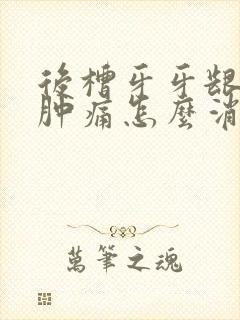 後槽牙牙龈
肿痛怎麼消
萬筆之魂